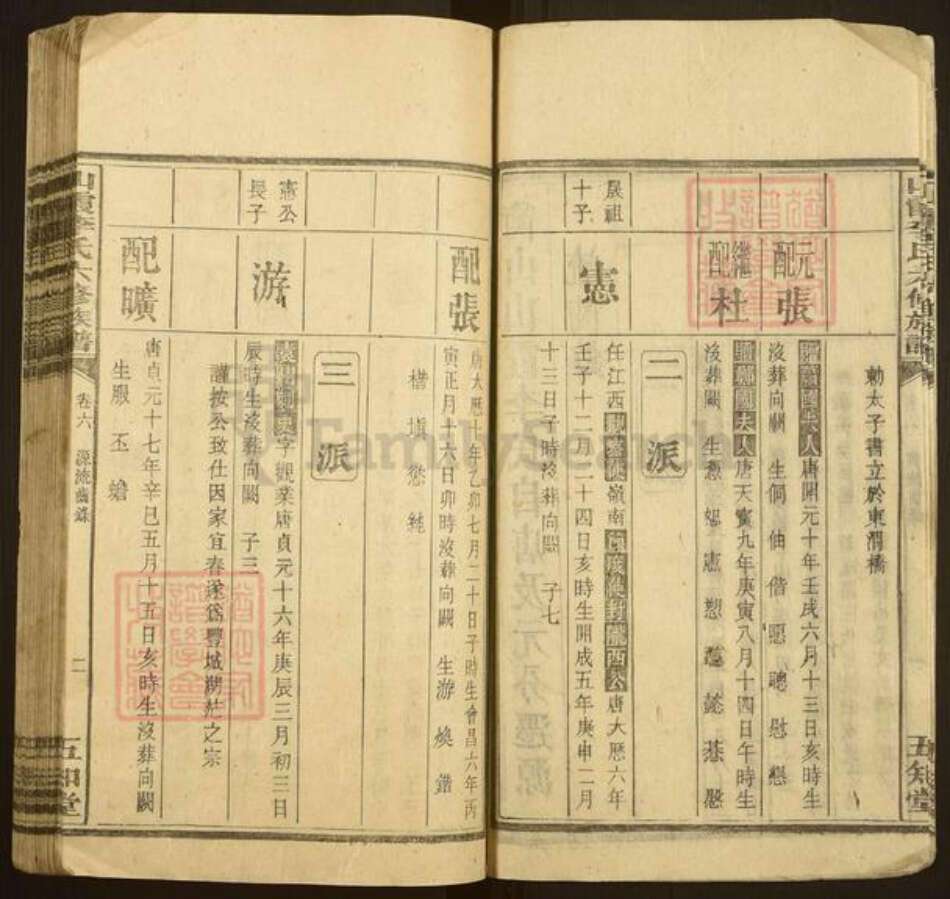 勅太子書立於東渭橋
元配張
唐開元十年壬戌六月十三日亥時生
沒葬向闕 生侗伷偕愿聰慰懇
繼配杜
夫人唐天寶九年庚寅八月十四日午時生
沒葬闕 生憑恕憲愬
二派
晟祖十子
憲
任江西觀察使嶺南唐大歷六年
壬子十二月二十四日亥時生開成五年庚申二月
十三日子時沒葬向闕 子七
配張
唐大歷十年乙卯七月二十日子時生會昌六年丙
寅正月十六日卯時沒葬向闕 生游煥鍇
三派
憲公長子
游
字觀業唐貞元十六年庚辰三月初三日
辰時生沒葬向闕 子三
謹按公致仕因家宜春遂爲豐城湖茫之宗
配曠
唐貞元十七年辛巳五月十五日亥時生沒葬向闕
生服丕蟾
李氏六修族譜
卷六
源流齒錄
二
五知堂
FamilySearch